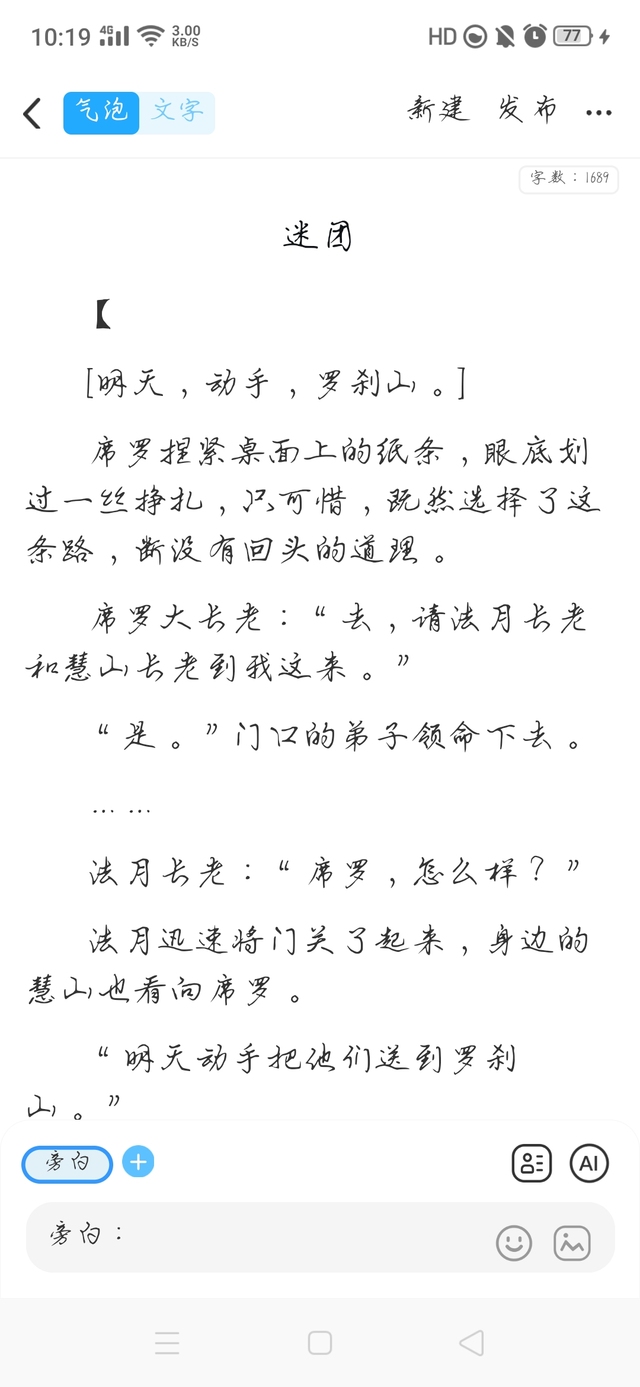 10:19 4G 3.00 KB/S HD 77
气泡 文字 新建 发布 ···
字数：1689
迷团
【
[明天，动手，罗刹山。]
席罗捏紧桌面上的纸条，眼底划
过一丝挣扎，只可惜，既然选择了这
条路，断没有回头的道理。
席罗大长老：“去，请法月长老
和慧山长老到我这来。”
“是。”门口的弟子领命下去。
… …
法月长老：“席罗，怎么样？”
法月迅速将门关了起来，身边的
慧山也看向席罗。
“明天动手把他们送到罗刹
山。”
旁白 AI
旁白：